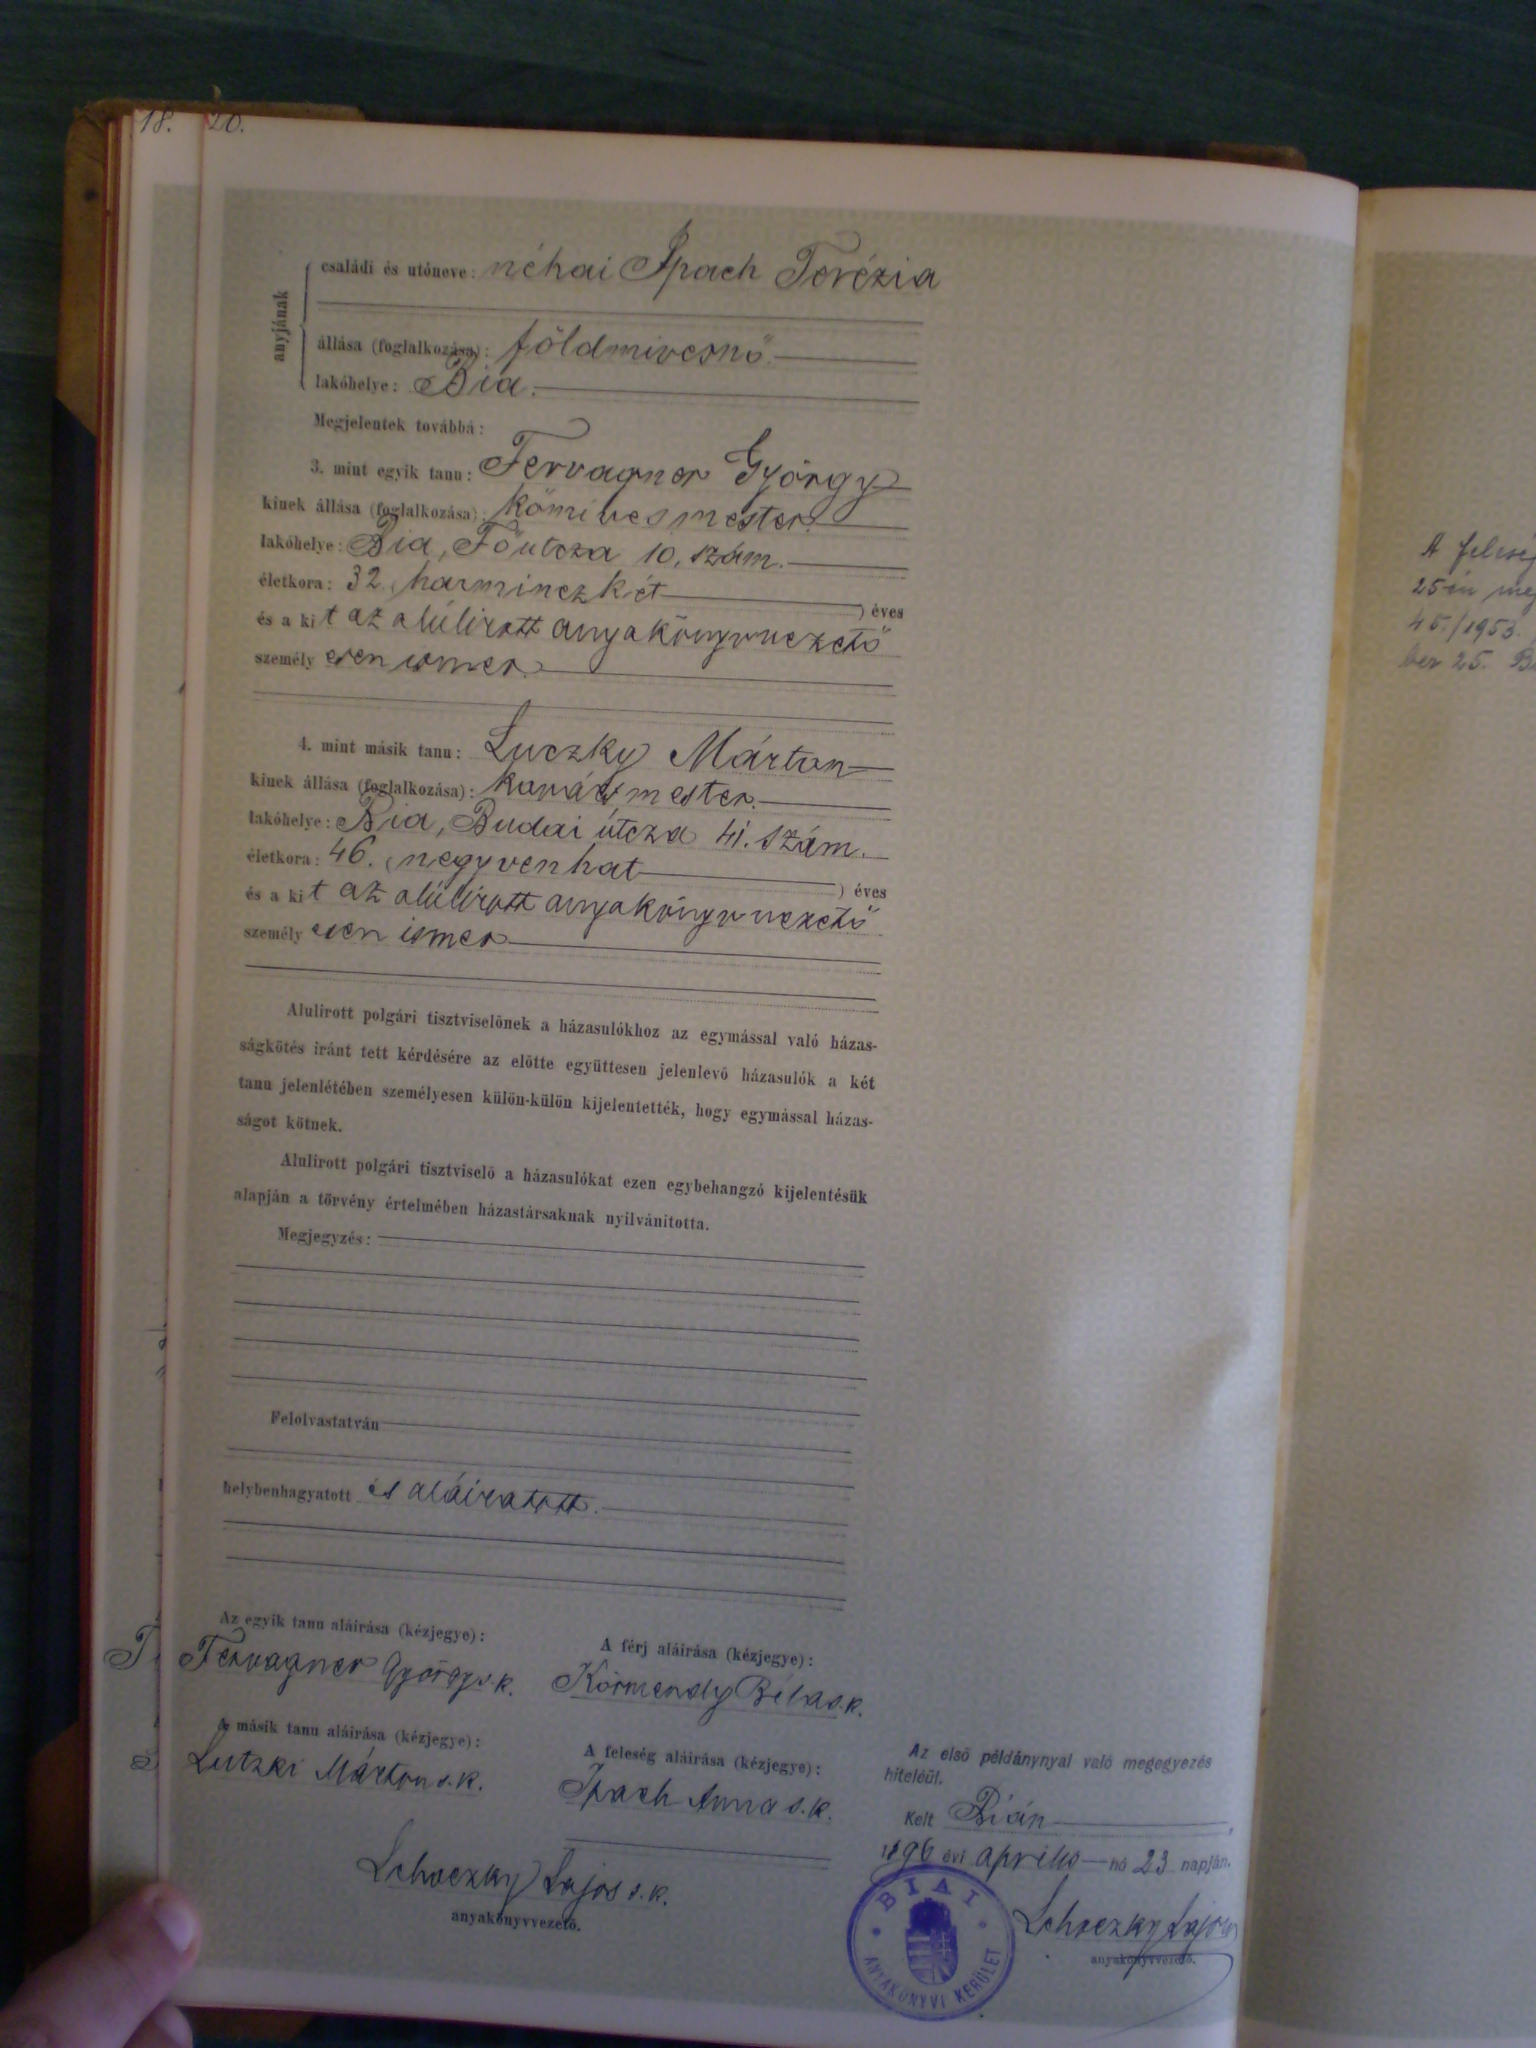 18. 20.
anyjának
családi és utóneve: néhai Ipach Terézia
állása (foglalkozása): földmivesnő
lakóhelye: Bia.
Megjelentek továbbá:
3. mint egyik tanu: Fervagner György
kinek állása (foglalkozása): kőmives mester.
lakóhelye: Bia, Főutcza 10. szám.
életkora: 32. (harminczkét) éves
és a kit az alúlirott anyakönyvvezető
személyesen ismer.
4. mint másik tanu: Luczky Márton
kinek állása (foglalkozása): kovács mester.
lakóhelye: Bia, Budai útcza 41. szám.
életkora: 46. (negyvenhat) éves
és a kit az alúlirott anyakönyvvezető
személyesen ismer
Alulirott polgári tisztviselőnek a házasulókhoz az egymással való házas-
ságkötés iránt tett kérdésére az előtte együttesen jelenlevő házasulók a két
tanu jelenlétében személyesen külön-külön kijelentették, hogy egymással házas-
ságot kötnek.
Alulirott polgári tisztviselő a házasulókat ezen egybehangzó kijelentésük
alapján a törvény értelmében házastársaknak nyilvánitotta.
Megjegyzés:
Felolvastatván
helybenhagyatott és aláiratott.
Az egyik tanu aláirása (kézjegye):
Fervagner György s. k.
A férj aláirása (kézjegye):
Körmendy Béla s. k.
A másik tanu aláirása (kézjegye):
Lutzki Márton s. k.
A feleség aláirása (kézjegye):
Ipach Anna s. k.
Lehoczky Lajos s. k.
anyakönyvvezető.
Az első példánynyal való megegyezés
hiteléül.
Kelt Bián,
1896 évi április hó 23 napján.
Lehoczky Lajos
anyakönyvvezető.
BIAI
ANYAKÖNYVI KERÜLET
A feleség
25-én meg
45./1953.
ber 25.